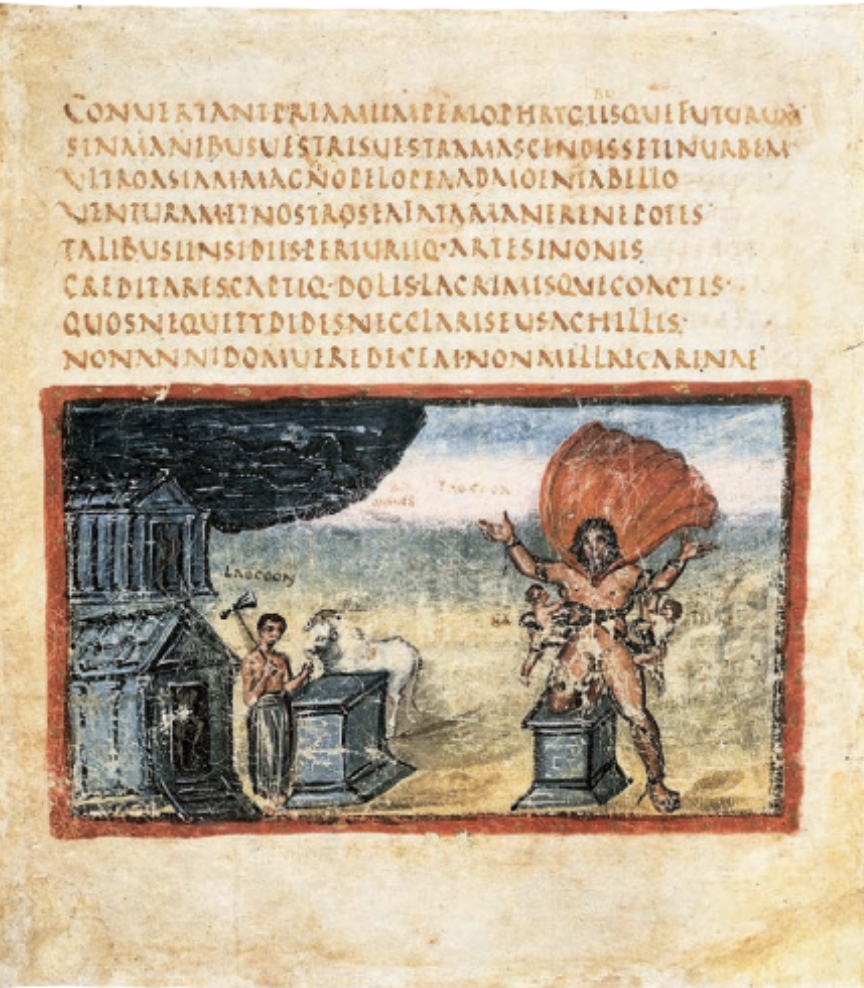 BU
CONVERTANTPRIAMIIMPERIOPHRYGIISQUEFUTURUM
SINMANIBUSVESTRISVESTRAMASCENDISSETINURBEM
VLTROASIAMMAGNOPELOPEAADMOENIABELLO
VENTURAM·ETNOSTROSEAFATAMANERENEPOTES
TALIBUSINSIDIIS·PERIURIIQ·ARTESINONIS
CREDITARESCAPTIQ·DOLIS·LACRIMISQUECOACTIS·
QUOSNEQUETYDIDESNECCLARISEUSACHILLIS·
NONANNIDOMUEREDECEM·NONMILLAECARINAE
LAOCOON
LAOCOON